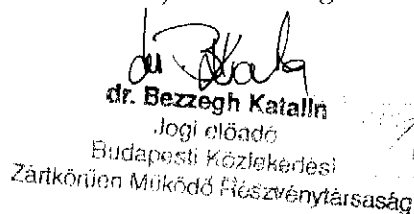 dr. Bezzegh Katalin
Jogi előadó
Budapesti Közlekedési
Zártkörűen Működő Részvénytársaság